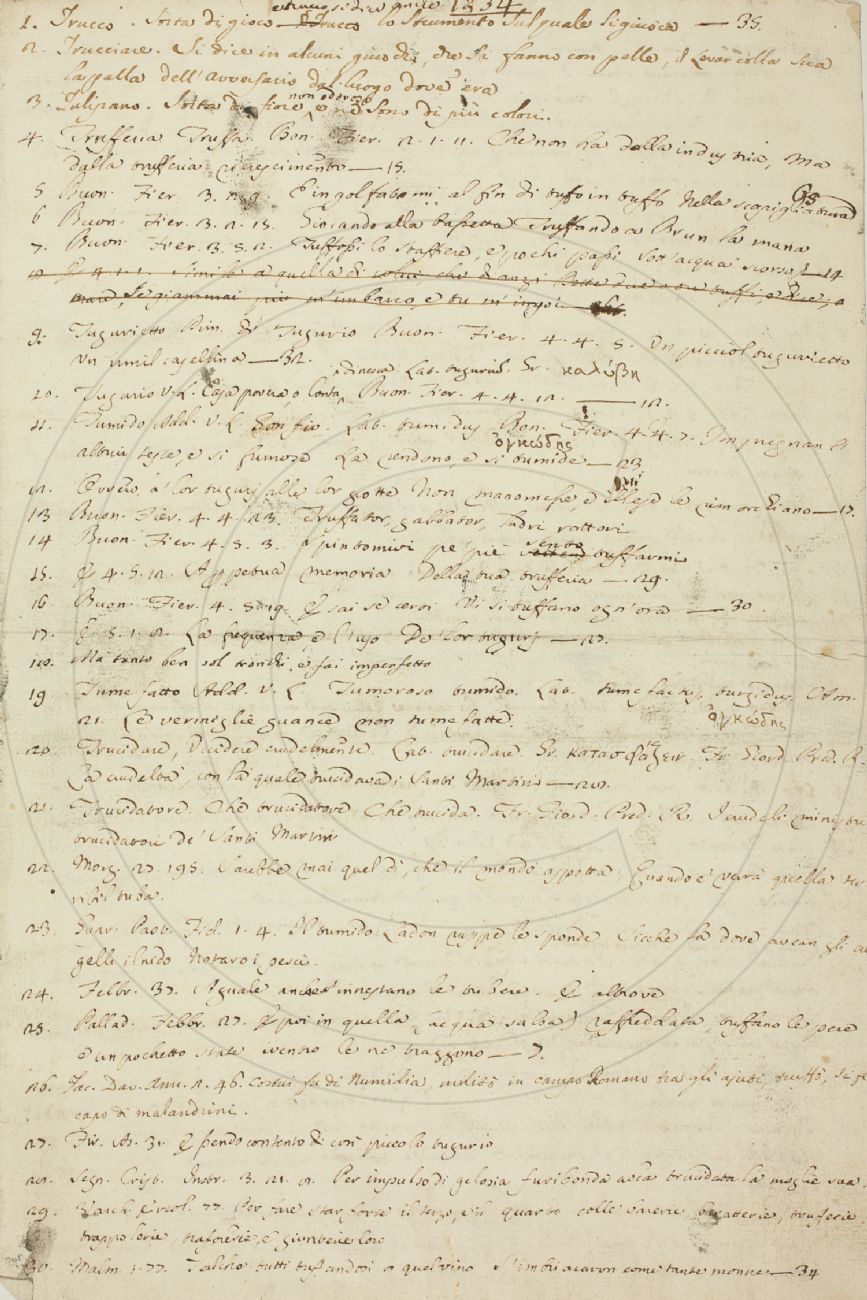 etruccosi dice anche 1234
1. Trucco. Sorta di gioco lo Strumento sul quale si giuoca — 35.
2. Trucciare. Si dice in alcuni giuochi, che si fanno con palle, il Levar colla sua
la palla dell'avversario dal luogo dove era
3. Tulipano. Sorta di fiore non odoroso e ne sono di più colori.
4. Trufferia Truffa. Bon. Fier. 2. 1. 11. Che non ha dalla industria, ma
dalla trufferia accrescimento — 15.
5 Buon. Fier. 3. 2. 9. E ingolfatomi al fin di tuffo in tuffo Nella scapigliatura
6 Buon. Fier. 3. 2. 15. Giocando alla bassetta Truffando a Brun la mana
7. Buon. Fier. 3. 5. 2. Tuffossi lo staffiere, e pochi passi Sott'acqua scorse — 14
8 E 4. 1. 1. Simile a quella di colui che
mare, Se giammai più m'imbarco, e tu m'ingoi
9. Tugurietto Dim. di Tugurio Buon. Fier. 4. 4. 5. Un picciol tugurietto
Un umil casellina — 32.
10. Tugurio V. L. Casa povera, o Contadinesca Lat. tugurium. Gr. καλύβη Buon. Fier. 4. 4. 12. — 12.
11. Tumido Add. V. L. Gonfio. Lat. tumidus ὀγκώδης Bon. Fier. 4. 4. 7. Impregnan
altrui teste, e si fumose Le rendono, e si tumide — 23
12. Ovvero, a' lor tugurj alle lor grotte Non manomesse e illese le rimorchiano — 15.
13 Buon. Fier. 4. 4. 23. Truffator, gabbator, ladri rattori
14 Buon. Fier. 4. 5. 3. Spintomivi pe' piè sento tuffarmi
15. E 4. 5. 12. A perpetua memoria Della tua trufferia — 29.
16 Buon. Fier. 4. 5. 19. E sai se ceroi Vi si tuffano ogn'ora — 30.
17. E 5. 1. 2. La frequenza, e l'uso De' lor tugurj — 27.
18. Ma tanto ben sol tronchi, e fai imperfetto
19 Tumefatto Add. V. L. Tumoroso tumido. Lat. tumefactus, turgidus ὀγκώδης Am.
21. Le vermiglie guance non tumefatte.
20. Trucidare, Uccidere crudelmente. Lat. trucidare. Gr. κατασφάζειν. Fr. Giord. Pred. R.
La crudeltà, con la quale trucidavai Santi Martiri — 20.
21. Trucidatore. Che trucidatore, Che trucida. Fr. Giord. Pred. R. I crudeli ministri
trucidatori de' Santi Martiri
22. Morg. 27. 195. Sarebbe mai quel dì, che il mondo aspetta, Quando e' verrà quella ter
ribil tuba.
23. Guar. Past. Fid. 1. 4. Il tumido Ladon ruppe le sponde Sicche là dove avean gli au
gelli il nido Notaro i pesci.
24. Febbr. 33. Iguale anche s'innestano le tubere. E altrove
25. Pallad. Febbr. 27. E poi in quella (acqua salsa) raffreddata, tuffano le pere
e un pochetto state ventro le ne traggono — 7.
26. Tac. Dav. Ann. 2. 46. Costui fu di Numidia, militò in campo Romano tra gli ajuti, truffò, si fe
capo di malandrini.
27. Fir. As. 31. Essendo contento di così piccolo tugurio
28. Segn. Crist. Instr. 3. 21. 8. Per impulso di gelosia furibonda avea trucidata la moglie sua.
29. Varch. Ercol. 77. Per fare star forte il terzo, e'l quarto colle barerie, truferie
trapolerie, traforerie, e giunterie loro
30. Malm. 1. 77. Talchè tutti tuffandosi a quel vino S'imbriacaron come tante monne — 34